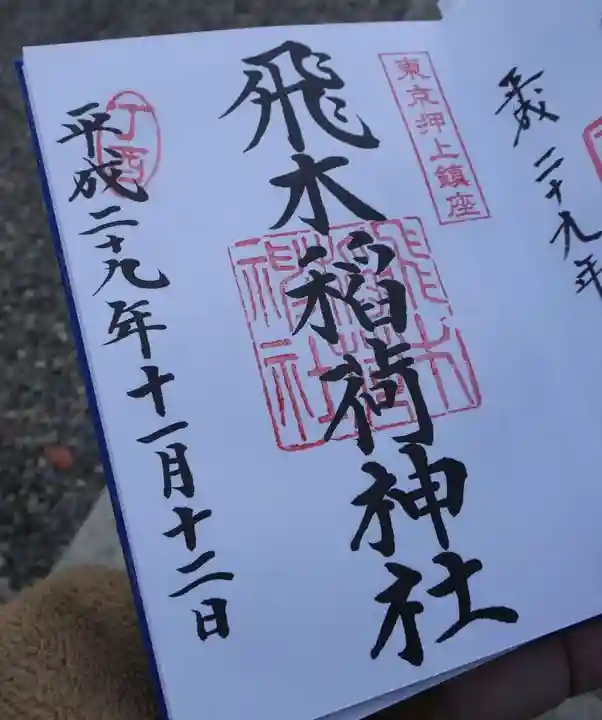 平成二十九年
東京押上鎮座
飛木稲荷神社
飛木稲荷神社
丁酉
平成二十九年十一月十二日